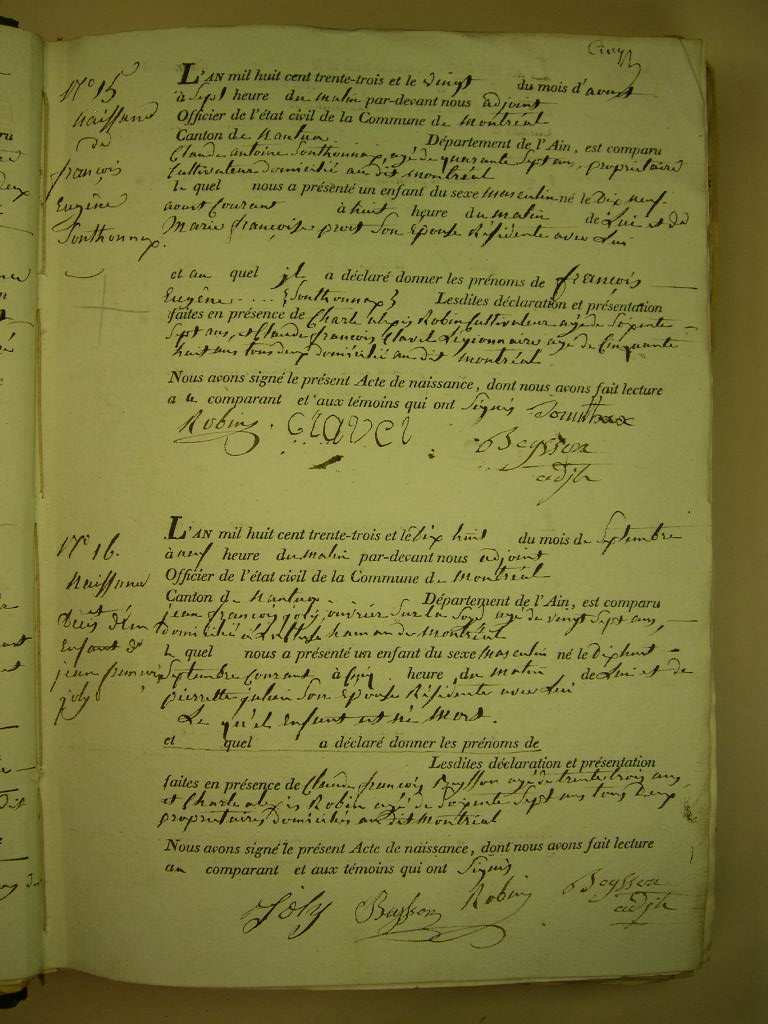 N.o 15
Naissance
de
françois
Eugêne
Sonthonnax.
L'AN mil huit cent trente-trois et le vingt du mois d'aoust
à Sept heure du Matin par-devant nous adjoint
Officier de l'état civil de la Commune de Montréal
Canton de Nantua Département de l'Ain, est comparu
Claude antoine Sonthonnax, agé de quarante Sept ans, propriétaire
Cultivateur domicilié au dit Montréal
le quel nous a présenté un enfant du sexe Masculin né le Dix neuf
aoust Courant à huit heure du Matin de Lui et de
Marie françoise prost Son Epouse Résidente avec Lui
et au quel jl a déclaré donner les prénoms de françois
Eugêne {Sonthonnax} Lesdites déclaration et présentation
faites en présence de Charle alexis Robin Cultivateur agé de Soixente
Sept ans, et Claude françois Clavel Légionnaire agé de Cinquante
huit ans tous deux domicilié au dit Montréal
Nous avons signé le présent Acte de naissance, dont nous avons fait lecture
a le comparant et aux témoins qui ont Signés
Robin CLAVEL
Beysson
adjt
N.o 16.
Naissance
et
Décès d'un
Enfant de
jean françois
joly
L'AN mil huit cent trente-trois et le Dix huit du mois de Septembre
à neuf heure du Matin par-devant nous adjoint
Officier de l'état civil de la Commune de Montréal
Canton de Nantua Département de l'Ain, est comparu
jean françois joly, ouvrier Sur la Soye agé de vingt Sept ans,
domicilié à hameau de Montréal
le quel nous a présenté un enfant du sexe Masculin né le Dix huit
Septembre Courant à Cinq heure du Matin de Lui et de
pierrette julien Son Epouse Résidente avec Lui
Le qu'el Enfant est né Mort.
et quel a déclaré donner les prénoms de
Lesdites déclaration et présentation
faites en présence de Claude françois Buysson agé de trente trois ans,
et Charle alexis Robin agé de Soixente Sept ans tous Deux
propriétaires domiciliés au dit Montréal
Nous avons signé le présent Acte de naissance, dont nous avons fait lecture
au comparant et aux témoins qui ont Signés
Joly Buysson Robin Beysson
adjt